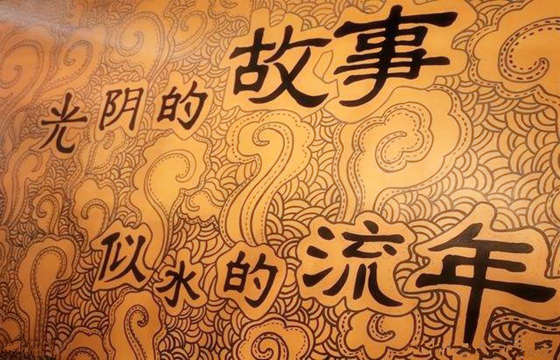 光阴的故事
似水的流年